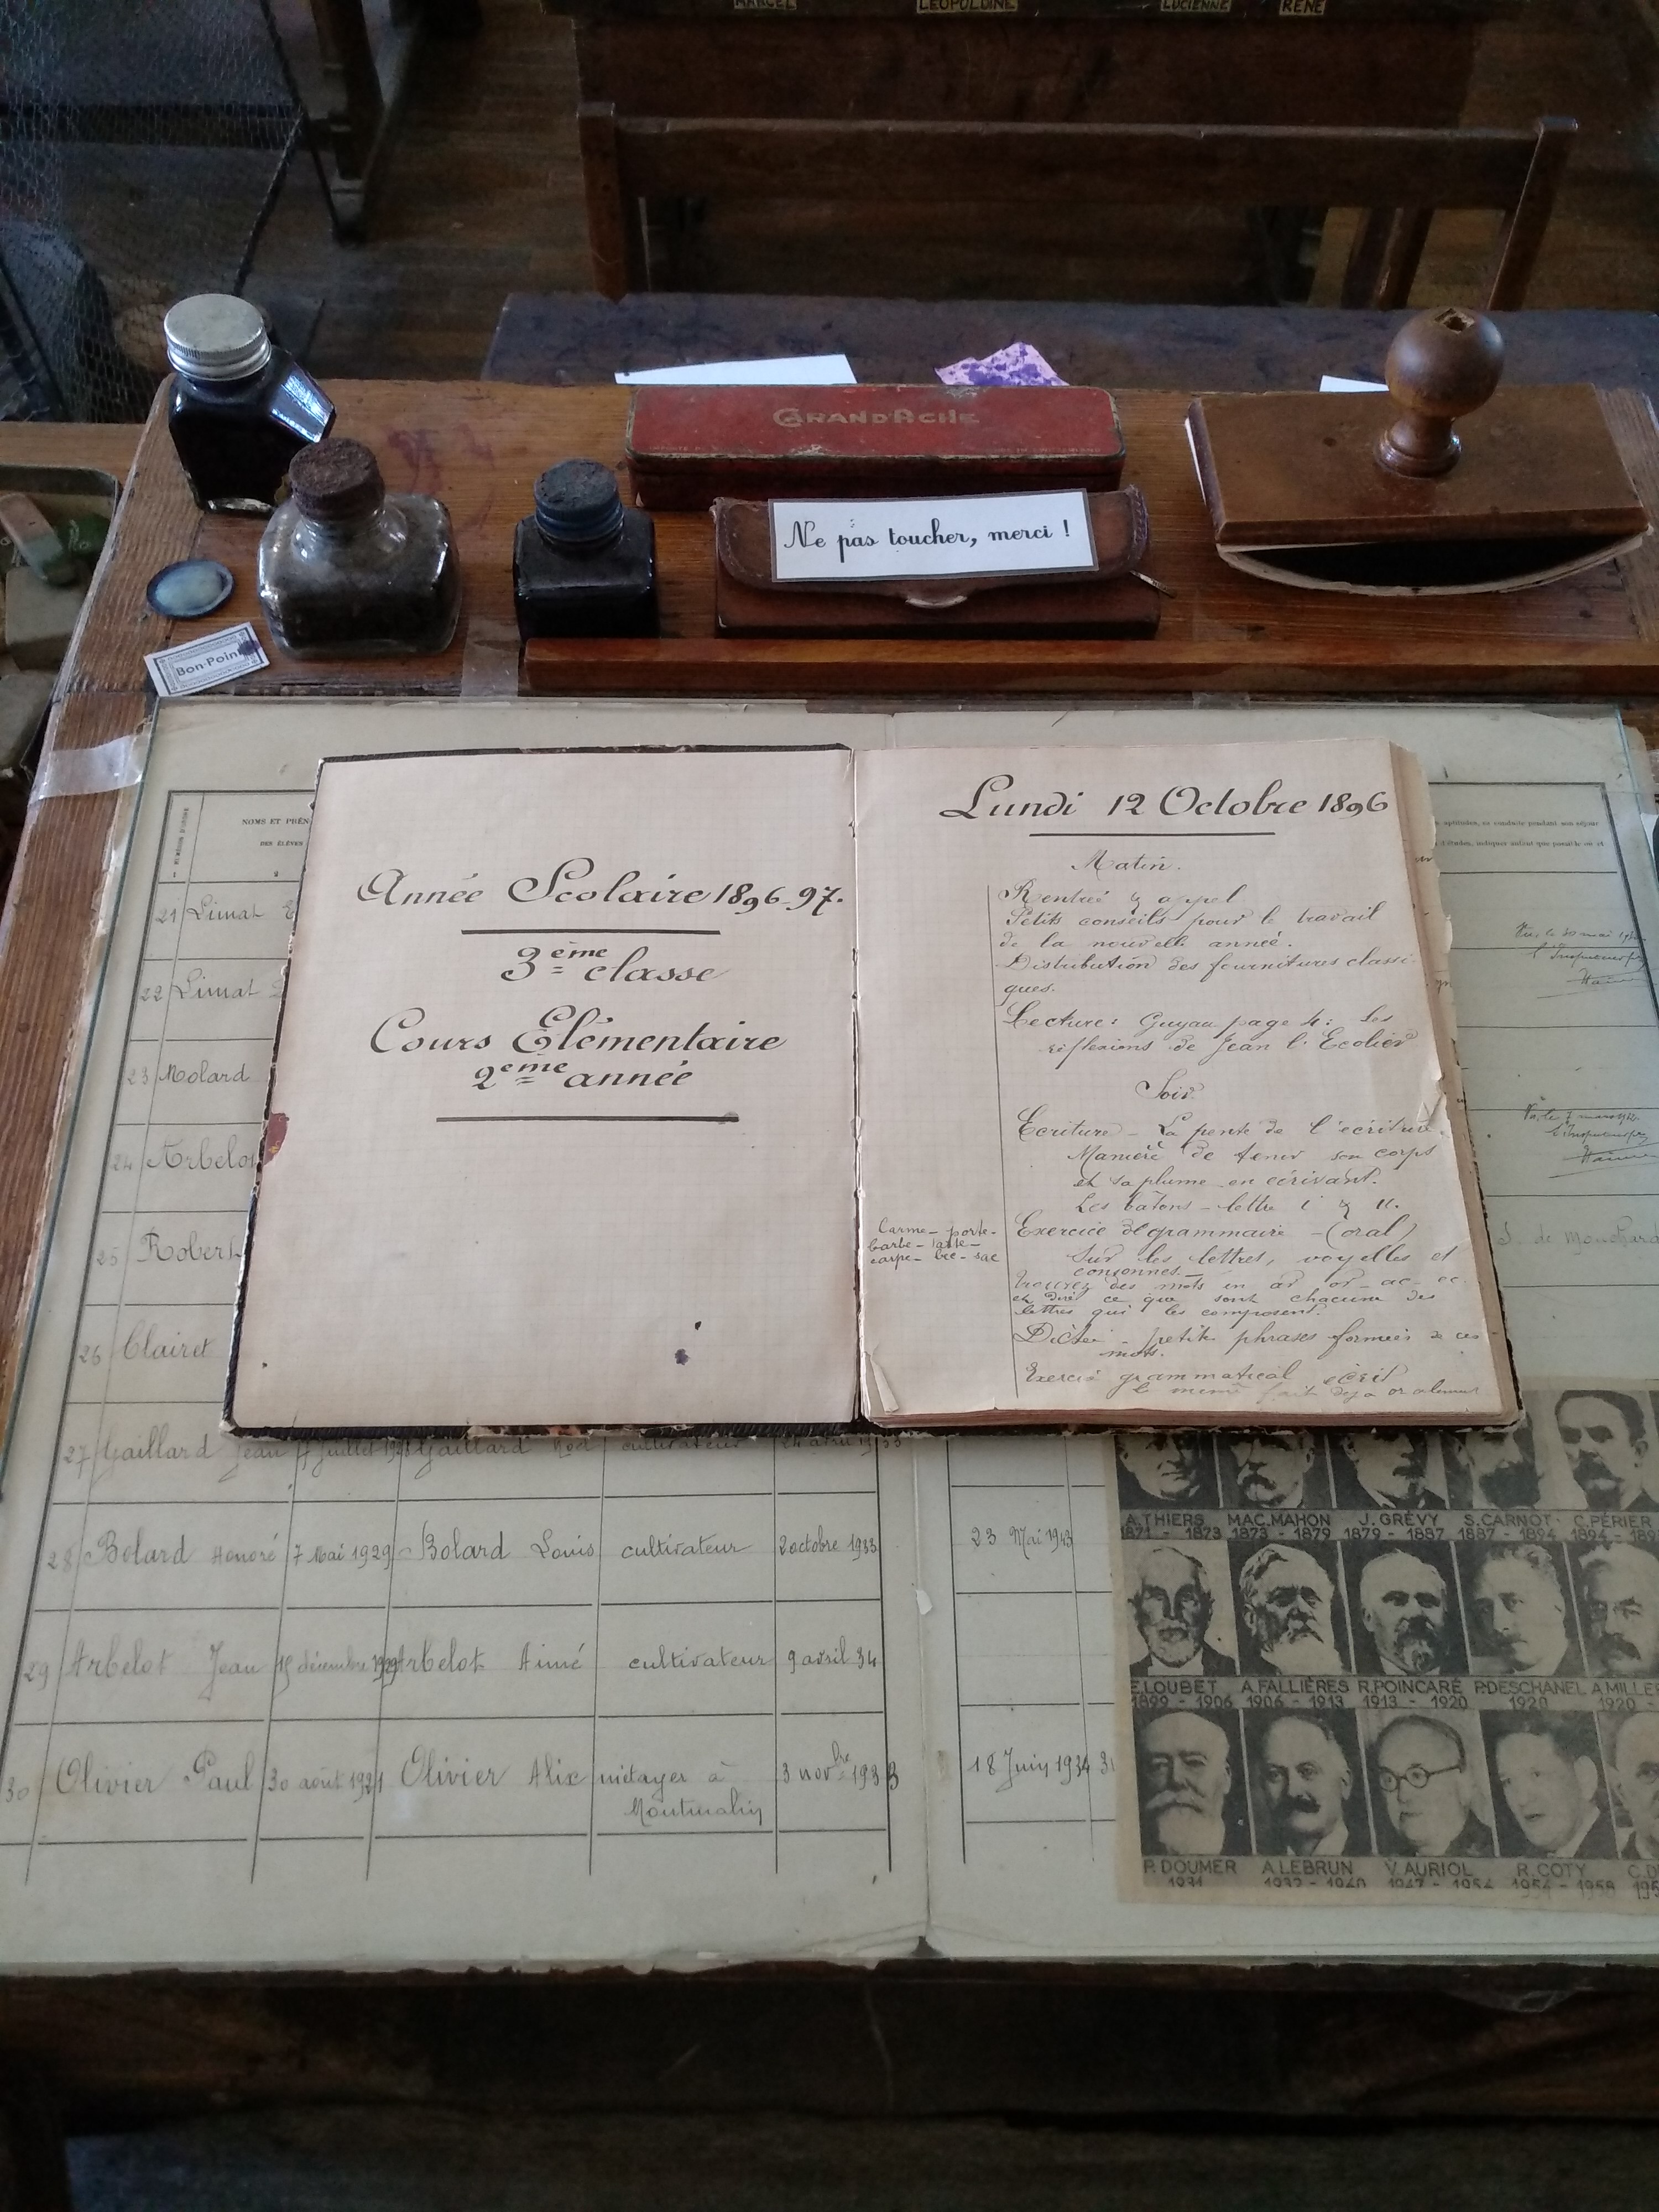 MARCEL
LÉOPOLDINE
LUCIENNE
RENÉ
CARAN D'ACHE
Ne pas toucher, merci !
Bon-Point
Année Scolaire 1896-97.
3ème classe
Cours Élémentaire
2ème année
Lundi 12 Octobre 1896
Matin.
Rentrée & appel
Petits conseils pour le travail
de la nouvelle année.
Distribution des fournitures classi-
ques.
Lecture : Guyau page 4 : Les
réflexions de Jean l'Ecolier
Soir
Ecriture - La pente de l'écriture.
Manière de tenir son corps
et sa plume en écrivant.
Les bâtons - lettre i & u.
Carme - porte -
barbe - tarte -
carpe - bec - sac
Exercice de grammaire - (oral)
Sur les lettres, voyelles et
consonnes. -
Trouvez des mots en ar or - ac - ec
et dire ce que sont chacune des
lettres qui les composent.
Dictée - petite phrases formées de ces
mots.
Exercice grammatical écrit
le même fait déjà oralement
NOMS ET PRÉN
DES ÉLÈVES
aptitudes, sa conduite pendant son séjour
21 Limat
22 Limat
23 Molard
24 Arbelot
25 Robert
26 Clairet
27 Gaillard Jean Gaillard cultivateur
28 Bolard Honoré 7 Mai 1929 Bolard Louis cultivateur 2 octobre 1933 23 Mai 1943
29 Arbelot Jean 15 décembre 1929 Arbelot Aimé cultivateur 9 avril 34
30 Olivier Paul 30 août 1921 Olivier Alix métayer à 3 novbre 1933 18 Juin 1934
A.THIERS MAC.MAHON J.GRÉVY S.CARNOT C.PÉRIER
1871 - 1873 1873 - 1879 1879 - 1887 1887 - 1894 1894 - 189
E.LOUBET A.FALLIÈRES R.POINCARÉ P.DESCHANEL A.MILLE
1899 - 1906 1906 - 1913 1913 - 1920 1920 1920 -
P.DOUMER A.LEBRUN V.AURIOL R.COTY C.D
1931 1932 - 1940 1947 - 1954 1954 - 1958 195